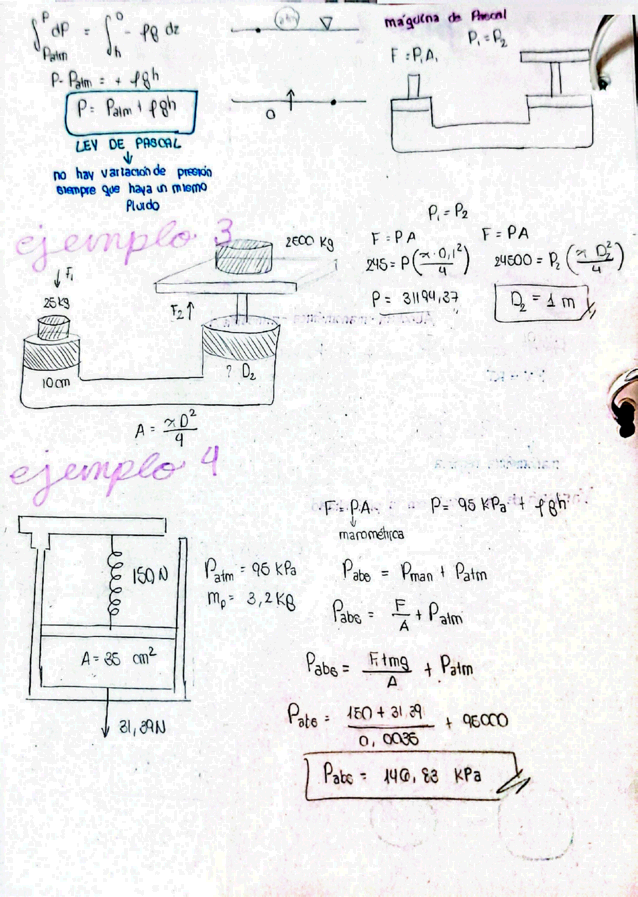 ∫_Patm^P dP = ∫_h^0 - ρg dz
P - Patm = + ρgh
P = Patm + ρgh
LEY DE PASCAL
↓
no hay variación de presión
siempre que haya un mismo
fluido
0
máquina de Pascal
P₁ = P₂
F = P₁A₁
ejemplo 3
↓F₁
25 kg
10 cm
2500 kg
F₂↑
? D₂
A = πD²/4
P₁ = P₂
F = PA
245 = P(π·0,1²/4)
P = 31194,37
F = PA
24500 = P₂(πD₂²/4)
D₂ = 1 m
ejemplo 4
150N
A = 35 cm²
31,39N
Patm = 95 kPa
mp = 3,2 Kg
F = P.A
↓
manométrica
P = 95 kPa + ρgh
Pabs = Pman + Patm
Pabs = F/A + Patm
Pabs = F+mg/A + Patm
Pabs = 150 + 31.39/0,0035 + 95000
Pabs = 146,83 kPa